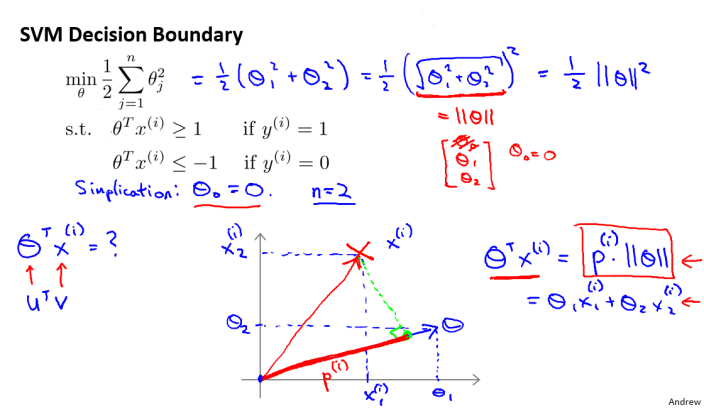 SVM Decision Boundary
min_θ 1/2 Σ_{j=1}^{n} θ_j^2 = 1/2 (θ_1^2 + θ_2^2) = 1/2 (√(θ_1^2 + θ_2^2))^2 = 1/2 ||θ||^2
= ||θ||
s.t. θ^T x^(i) ≥ 1 if y^(i) = 1
θ^T x^(i) ≤ −1 if y^(i) = 0
[θ_1 θ_2] θ_0 = 0
Simplication: θ_0 = 0. n=2
θ^T x^(i) = ?
u^T v
x_2^(i)
x^(i)
θ_2
θ
p^(i)
x_1^(i)
θ_1
θ^T x^(i) = p^(i) · ||θ|| ←
= θ_1 x_1^(i) + θ_2 x_2^(i) ←
Andrew